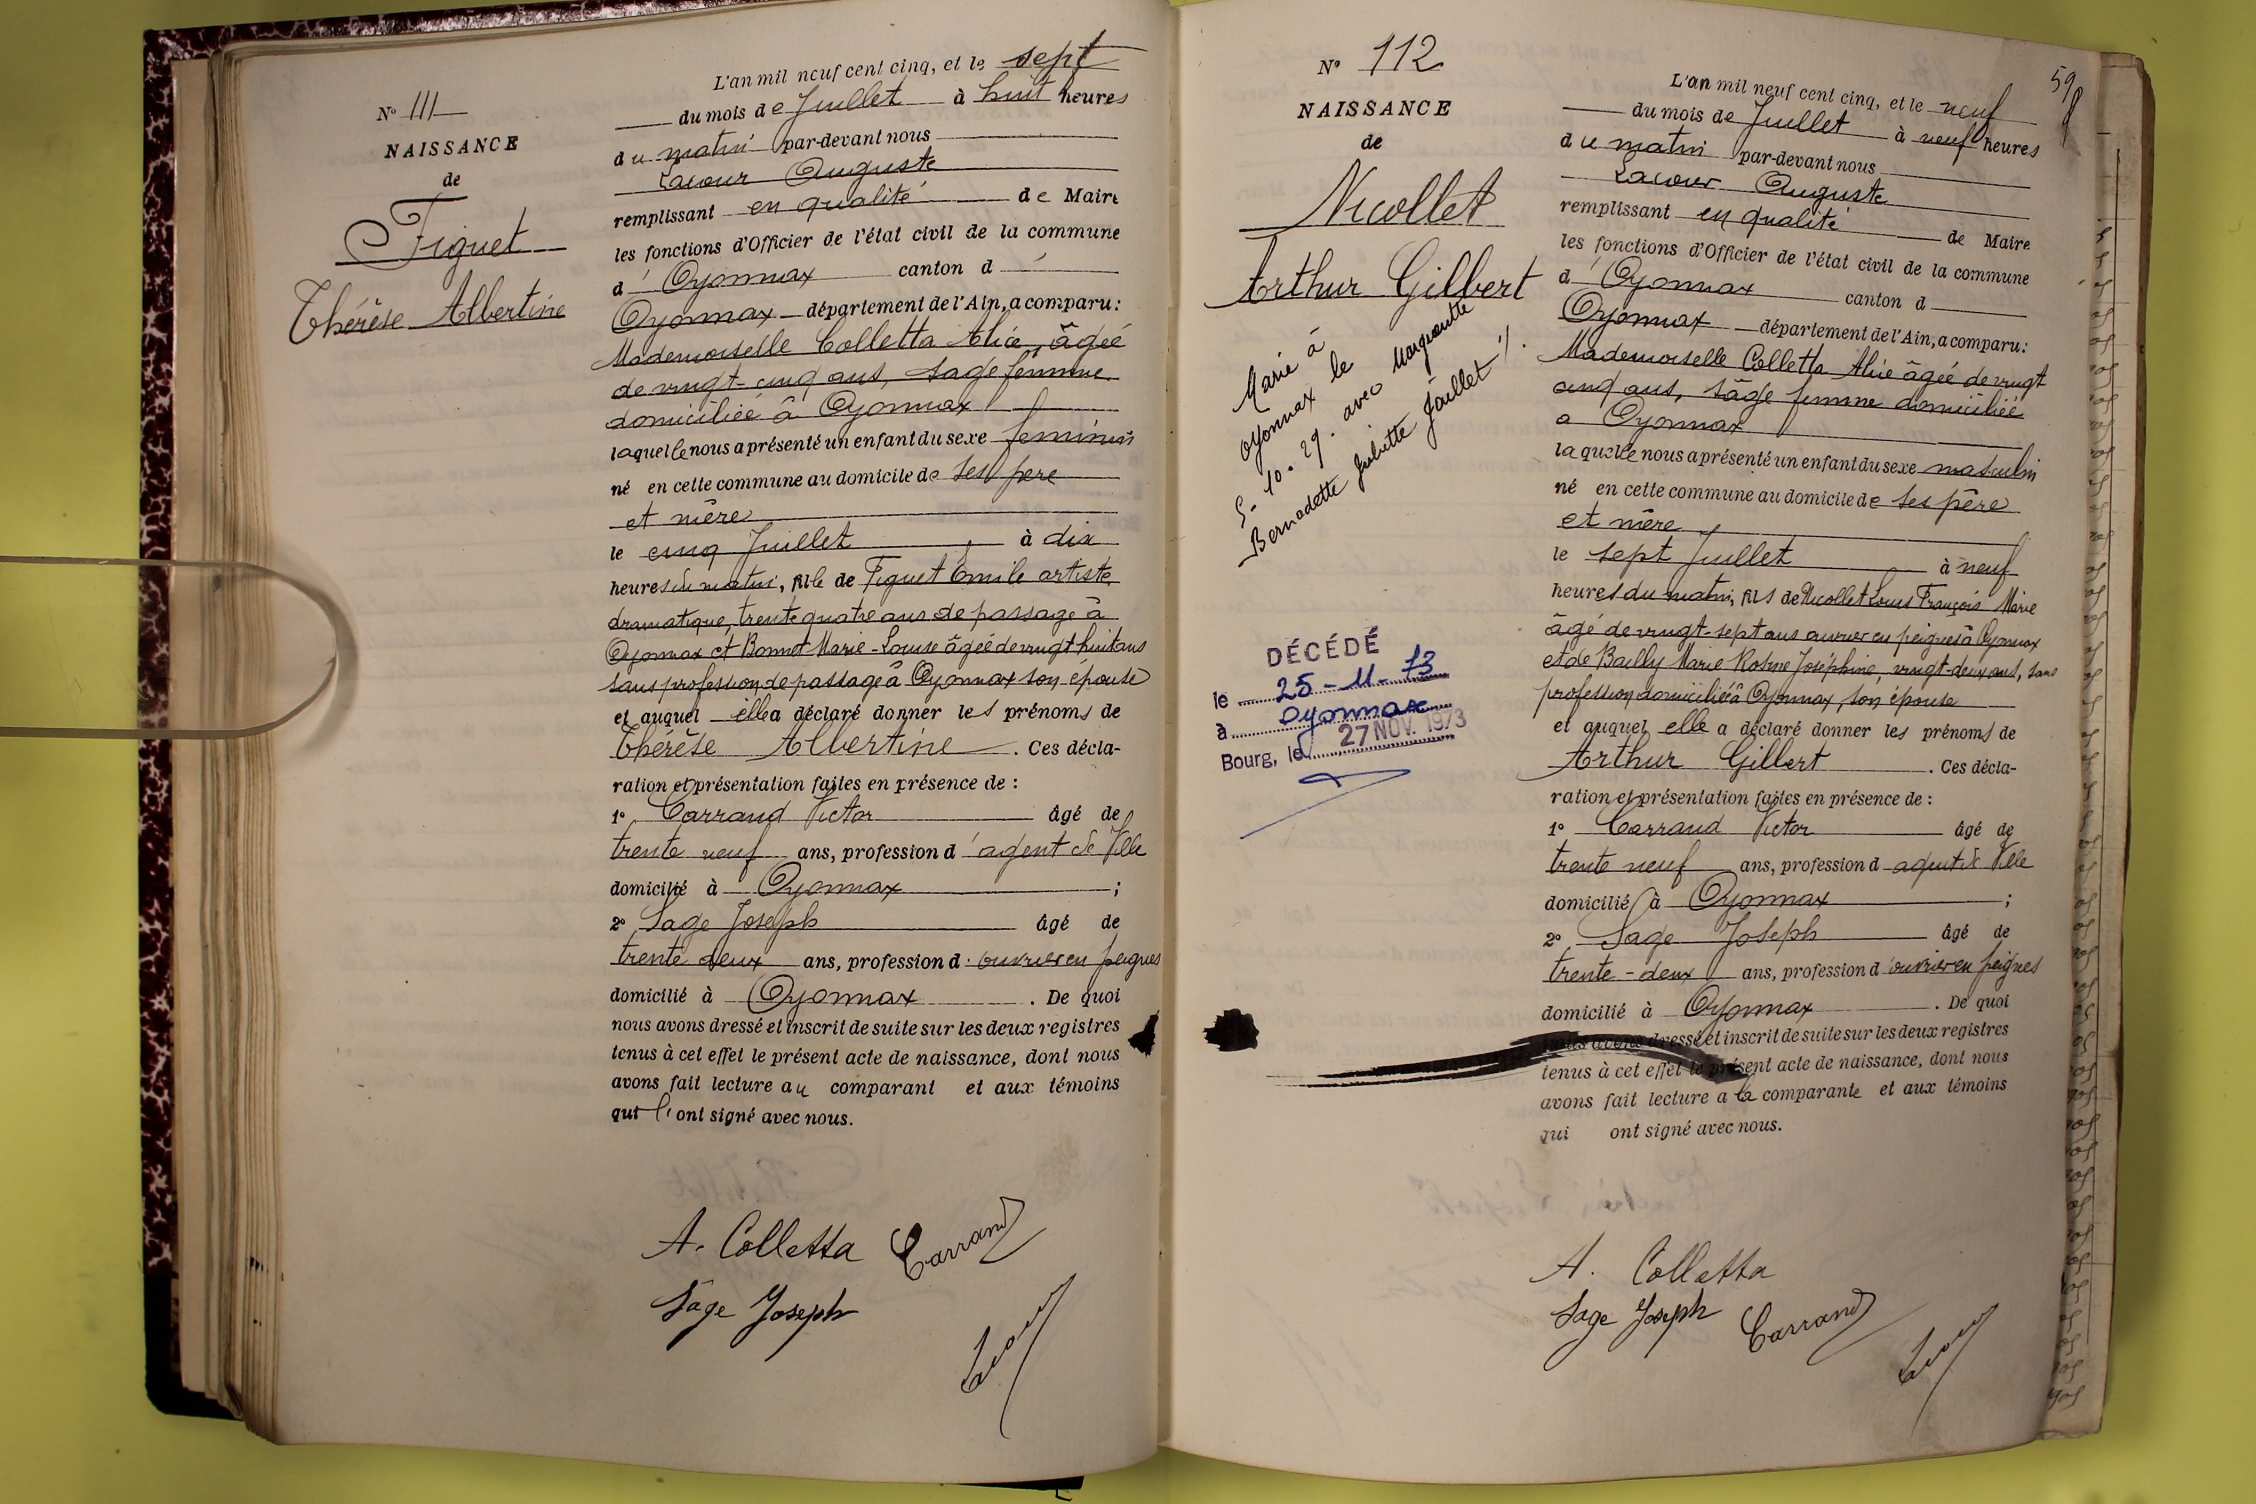 N° 111
NAISSANCE
de
Figuet
Thérèse Albertine
L'an mil neuf cent cinq, et le sept
du mois de Juillet à huit heures
du matin par-devant nous
Lacour Auguste
remplissant en qualité de Maire
les fonctions d'Officier de l'état civil de la commune
d' Oyonnax canton d'
Oyonnax département de l'Ain, a comparu :
Mademoiselle Colletta Alice, âgée
de vingt-cinq ans, sage femme
domiciliée à Oyonnax
laquelle nous a présenté un enfant du sexe féminin
né en cette commune au domicile de ses père
et mère
le cinq Juillet à dix
heures du matin, fille de Figuet Emile artiste
dramatique, trente quatre ans de passage à
Oyonnax et Bonnot Marie-Louise âgée de vingt huit ans
sans profession de passage à Oyonnax son épouse
et auquel elle a déclaré donner les prénoms de
Thérèse Albertine . Ces décla-
ration et présentation faites en présence de :
1° Carrand Victor âgé de
trente neuf ans, profession d'agent de Ville
domicilié à Oyonnax ;
2° Sage Joseph âgé de
trente deux ans, profession d'ouvrier en peignes
domicilié à Oyonnax . De quoi
nous avons dressé et inscrit de suite sur les deux registres
tenus à cet effet le présent acte de naissance, dont nous
avons fait lecture au comparant et aux témoins
qui l'ont signé avec nous.
A. Colletta Carrand
Sage Joseph
Lacour
59
N° 112
NAISSANCE
de
Nicollet
Arthur Gilbert
Marié à
Oyonnax le
5-10-29. avec Marguerite
Bernadette Juliette Jaillet ./.
DÉCÉDÉ
le 25-11-73
à Oyonnax
Bourg, le 27 NOV. 1973
L'an mil neuf cent cinq, et le neuf
du mois de Juillet à neuf heures
du matin par-devant nous
Lacour Auguste
remplissant en qualité de Maire
les fonctions d'Officier de l'état civil de la commune
d' Oyonnax canton d
Oyonnax département de l'Ain, a comparu :
Mademoiselle Colletta Alice âgée de vingt
cinq ans, sage femme domiciliée
a Oyonnax
laquelle nous a présenté un enfant du sexe masculin
né en cette commune au domicile de ses père
et mère
le sept Juillet à neuf
heures du matin, fils de Nicollet Louis François Marie
âgé de vingt-sept ans ouvrier en peignes à Oyonnax
et de Bailly Marie Rosine Joséphine, vingt-deux ans, sans
profession domiciliée à Oyonnax, son épouse
et auquel elle a déclaré donner les prénoms de
Arthur Gilbert . Ces décla-
ration et présentation faites en présence de :
1° Carrand Victor âgé de
trente neuf ans, profession d agent de Ville
domicilié à Oyonnax ;
2° Sage Joseph âgé de
trente-deux ans, profession d'ouvrier en peignes
domicilié à Oyonnax . De quoi
nous avons dressé et inscrit de suite sur les deux registres
tenus à cet effet le présent acte de naissance, dont nous
avons fait lecture a la comparante et aux témoins
qui ont signé avec nous.
A. Colletta
Sage Joseph Carrand
Lacour